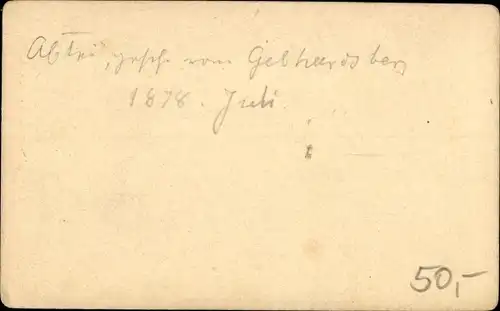 Abtei, gesehe. vom Gebhardsberg
1878. Juli.
50,-